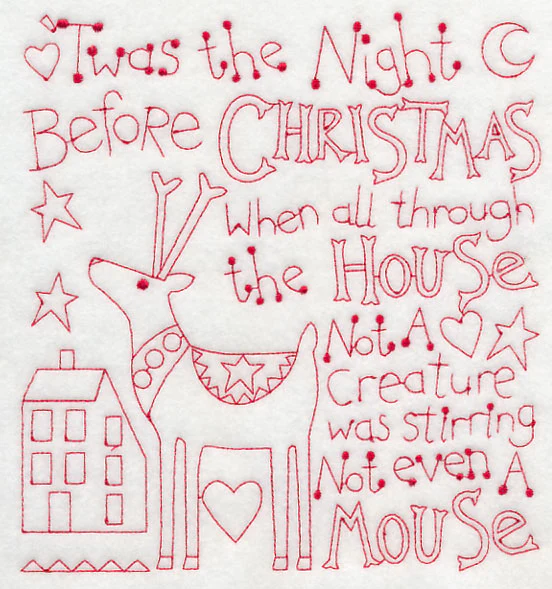 'Twas the Night
Before CHRISTMAS
When all through
the HOUSe
Not A
Creature
was stirring
Not even A
MOUSe